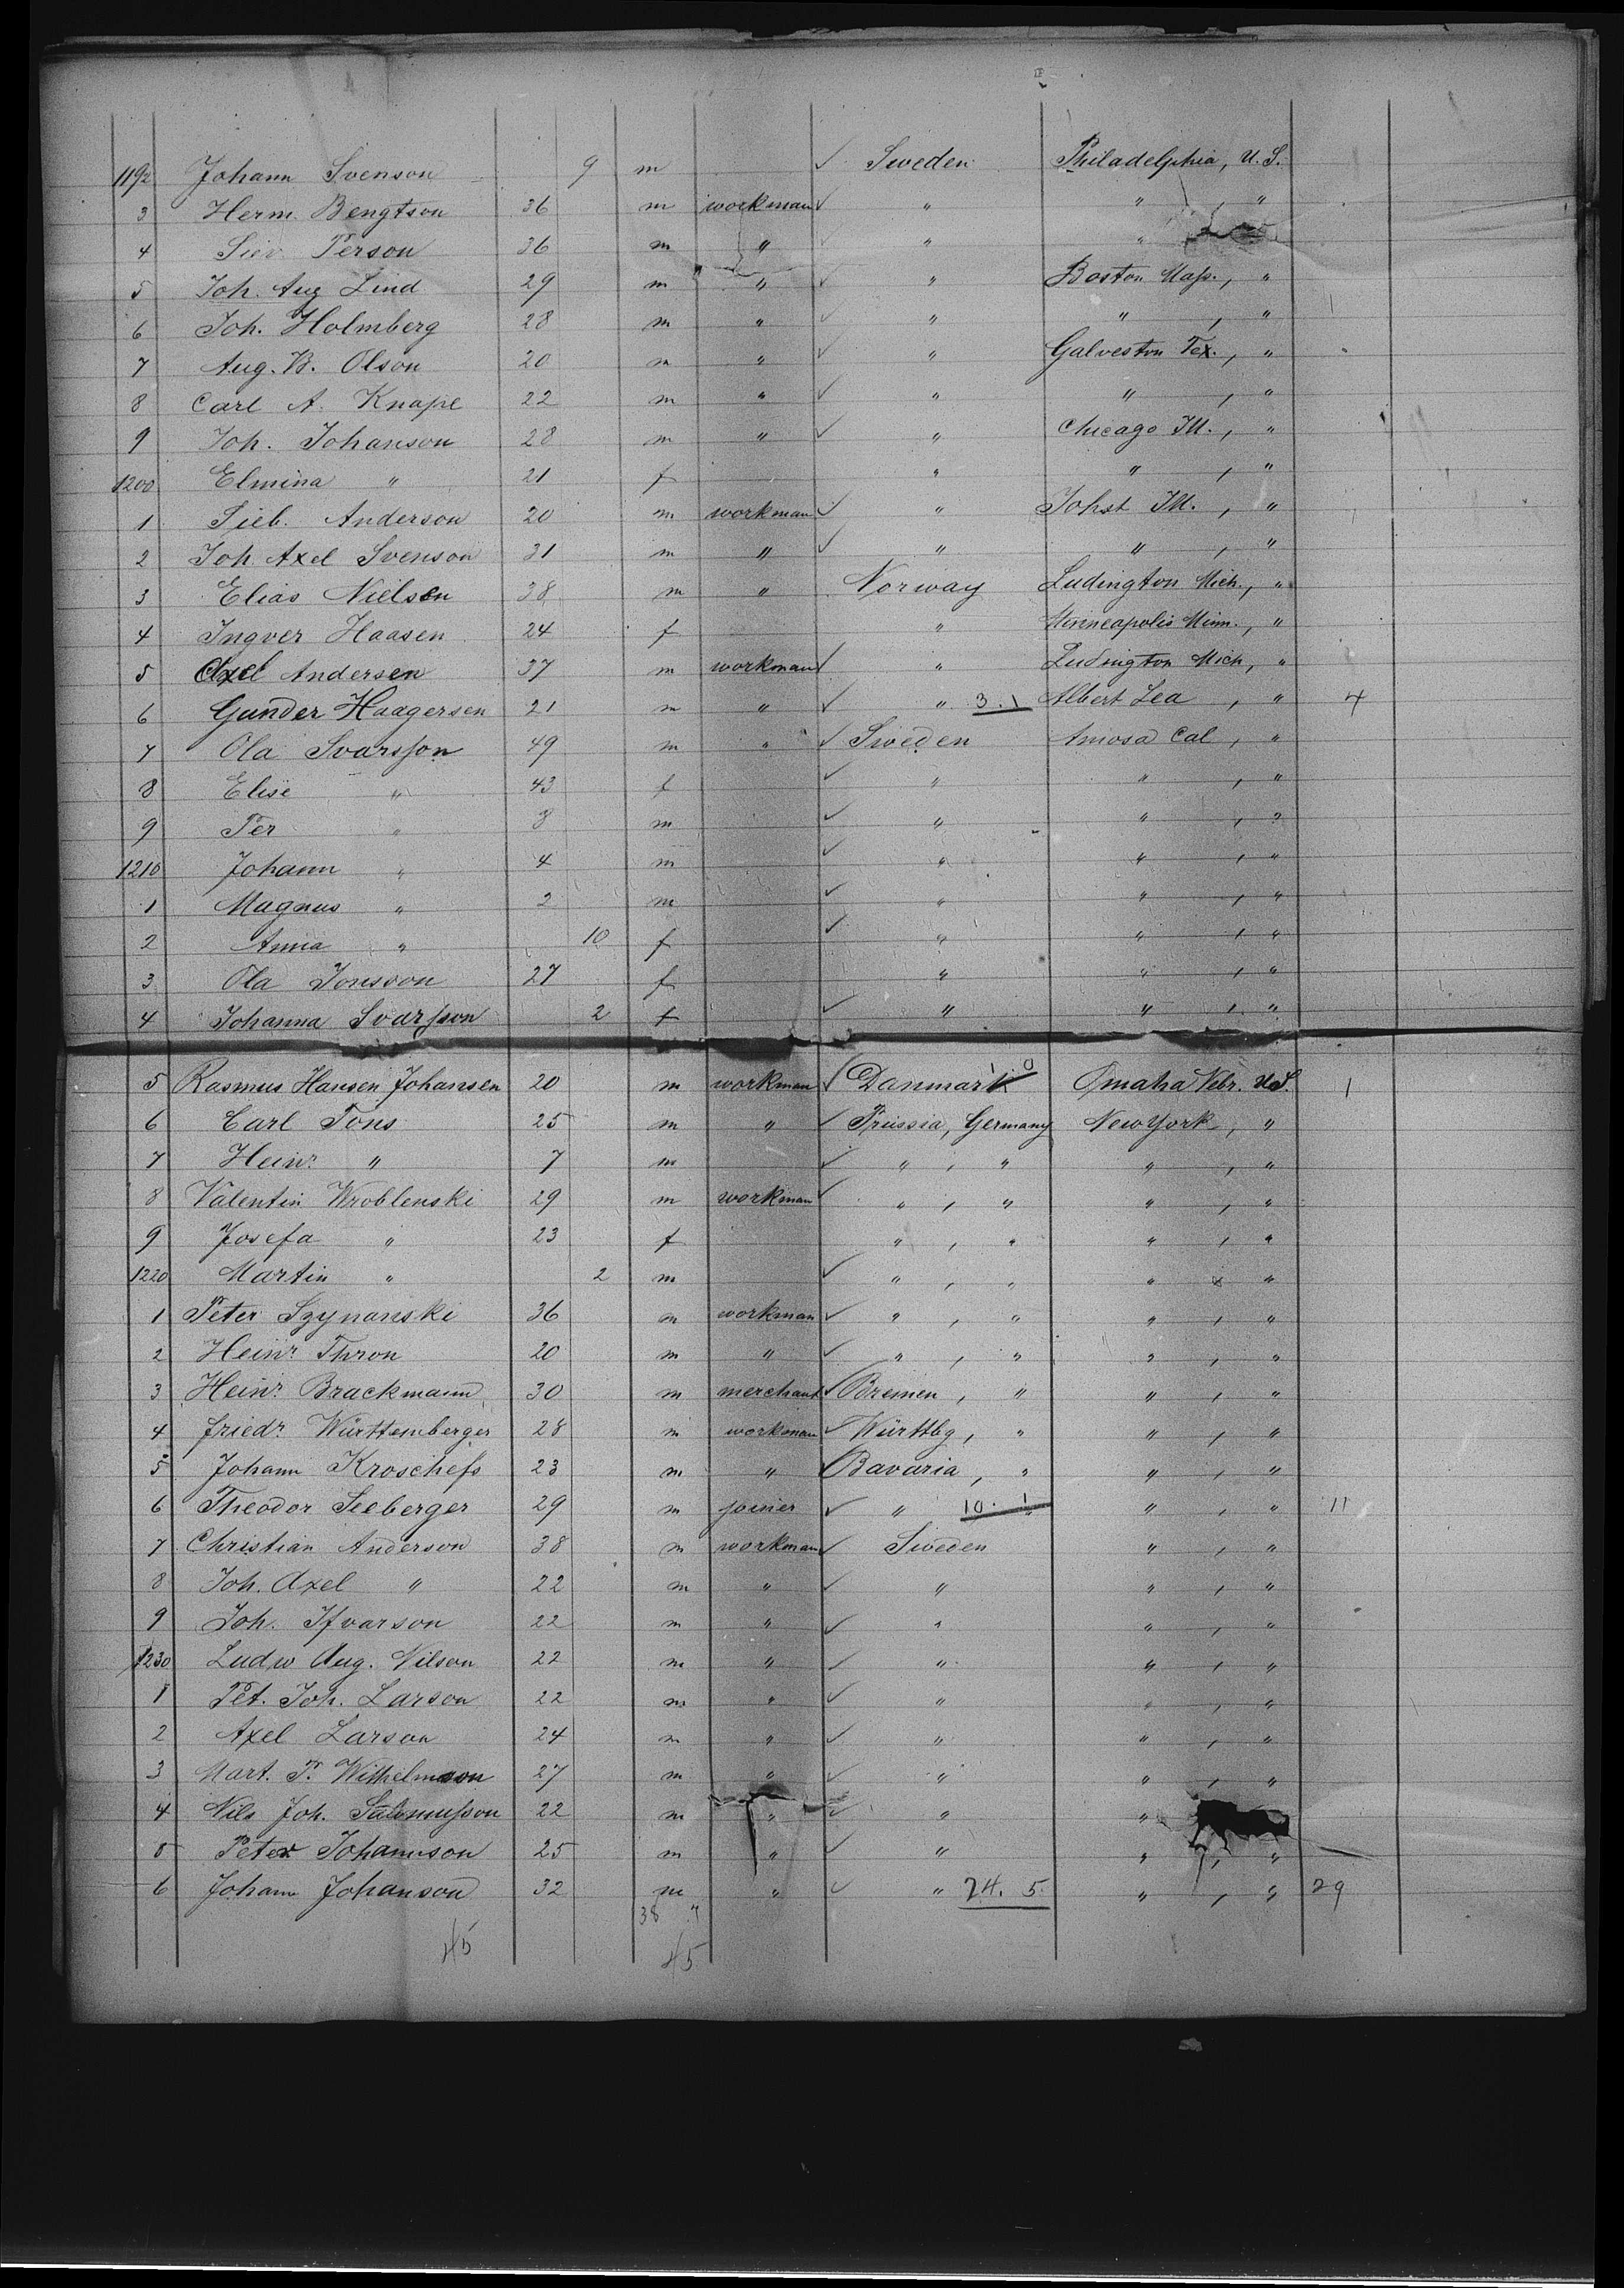 1192 Johann Svenson 9 m ✓ Sweden Philadelphia, U.S.
3 Herm. Bengtson 36 m workman ✓ " " , "
4 Siev Person 36 m " ✓ " "
5 Joh. Aug Lind 29 m " ✓ " Boston Mass., "
6 Joh. Holmberg 28 m " ✓ " " , "
7 Aug. B. Olson 20 m " ✓ " Galveston Tex., "
8 Carl A. Knape 22 m " ✓ " " , "
9 Joh. Johanson 28 m " ✓ " Chicago Ill., "
1200 Elmina " 21 f " " , "
1 Sieb. Anderson 20 m workman ✓ " Johst Ill. , "
2 Joh. Axel Svenson 31 m " ✓ " " , "
3 Elias Nielsen 38 m " Norway Ludington Mich., "
4 Ingver Haasen 24 f " Minneapolis Minn., "
5 Axel Andersen 37 m workman ✓ " Ludington Mich, "
6 Gunder Haagersen 21 m " ✓ " 3.1 Albert Lea , " 4
7 Ola Svarsson 49 m " ✓ Sweden Amosa Cal , "
8 Elise " 43 f ✓ " " , "
9 Per " 8 m ✓ " " , "
1210 Johann " 4 m ✓ " " , "
1 Magnus " 2 m ✓ " " , "
2 Anna " 10 f ✓ " " , "
3 Ola Jonsson 27 f " " , "
4 Johanna Svarsson 2 f ✓ " " , "
5 Rasmus Hansen Johansen 20 m workman ✓ Danmark 1 0 Omaha Nebr. U.S. 1
6 Carl Tons 25 m " ✓ Prussia, Germany New York , "
7 Heinr. " 7 m ✓ " , " " , "
8 Valentin Wroblenski 29 m workman ✓ " , " " , "
9 Josefa " 23 f " , " " , "
1220 Martin " 2 m ✓ " , " " , "
1 Peter Szynanski 36 m workman ✓ " , " " , "
2 Heinr. Thron 20 m " ✓ " , " " , "
3 Heinr. Brackmann 30 m merchant ✓ Bremen , " " , "
4 Friedr. Württemberger 28 m workman ✓ Württbg, " " , "
5 Johann Kroschefs 23 m " ✓ Bavaria , " " , "
6 Theodor Seeberger 29 m joiner ✓ " 10. 1 " , " 11
7 Christian Anderson 38 m workman ✓ Sweden " , "
8 Joh. Axel " 22 m " ✓ " " , "
9 Joh. Ifvarson 22 m " ✓ " " , "
1230 Ludw Aug. Nilson 22 m " ✓ " " , "
1 Pet. Joh. Larson 22 m " ✓ " " , "
2 Axel Larson 24 m " ✓ " " , "
3 Mart. P. Wilhelmson 27 m " ✓ " " , "
4 Nils Joh. 22 m " ✓ " "
5 Peter Johannson 25 m " ✓ " " , "
6 Johann Johanson 32 m " ✓ " 24. 5. " , " 29
38 7
45 45